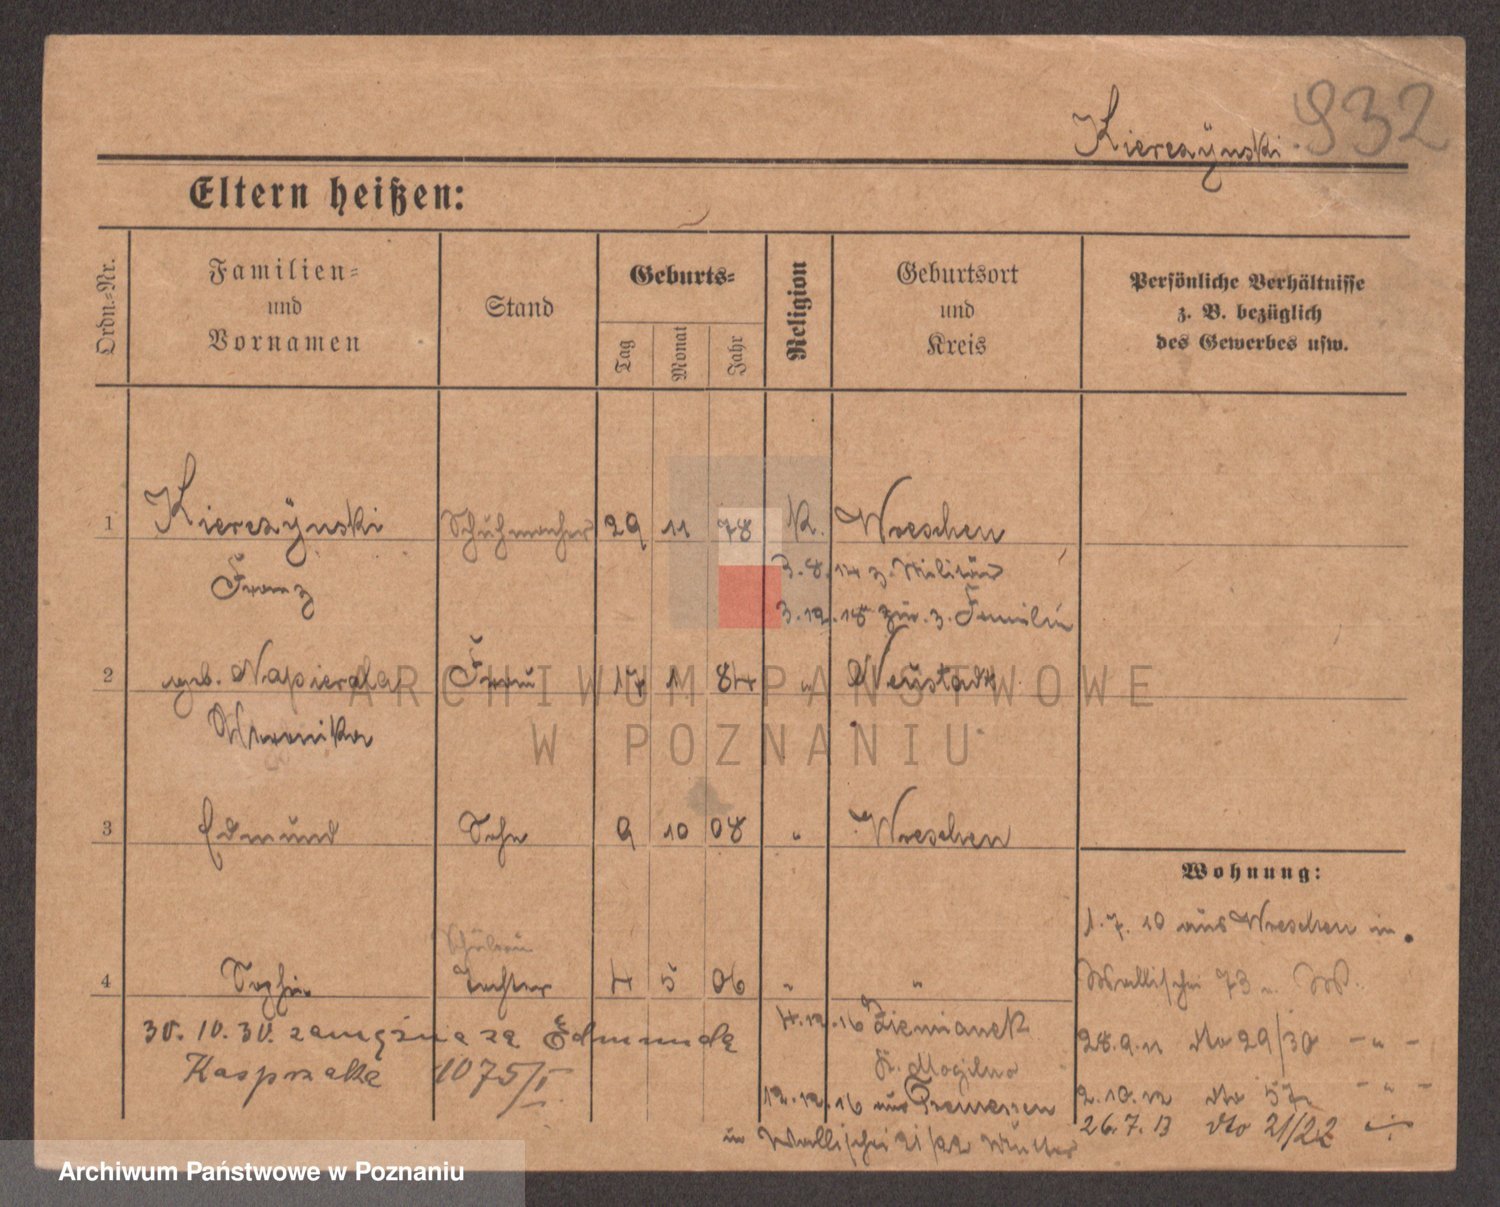 Kierczynski 932
Eltern heißen:
Ordn.-Nr.
Familien- und Vornamen
Stand
Geburts-
Tag Monat Jahr
Religion
Geburtsort und Kreis
Persönliche Verhältnisse
z. B. bezüglich
des Gewerbes usw.
1 Kierczynski Schuhmacher 29 11 78 K. Wreschen
Franz 3.8.14 z. Militär
3.12.18 zur. z. Familie
2 geb. Napierala Frau 14 1 84 " Neustadt
Weronika
3 Edmund Sohn 9 10 08 " Wreschen
Wohnung:
1.7.10 aus Wreschen in
Schülerin
4 Sophie Tochter 4 5 06 " "
Wallischei 73 W.
30.10.30. zamężna za Edmunda
4.12.16 Ziemianek
28.9.11 dto 29/30 - " -
Kasprzaka 1075/I
K. Mogilno
12.12.16 aus Tremessen
2.10.12 dto - " -
26.7.13 dto 21/22
in Wallischei 21/22 Mutter
ARCHIWUM PAŃSTWOWE
W POZNANIU
Archiwum Państwowe w Poznaniu